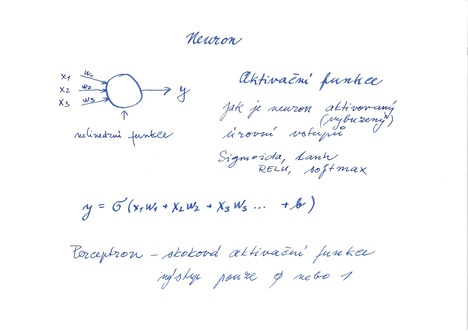 Neuron
x1 w1
x2 w2
x3 w3
y
nelineární funkce
Aktivační funkce
jak je neuron aktivovaný
(vybuzený)
úrovní vstupů
Sigmoida, tanh
RELU, softmax
y = σ(x1w1 + x2w2 + x3w3 ... + b)
Perceptron – skoková aktivační funkce
výstup pouze φ nebo 1